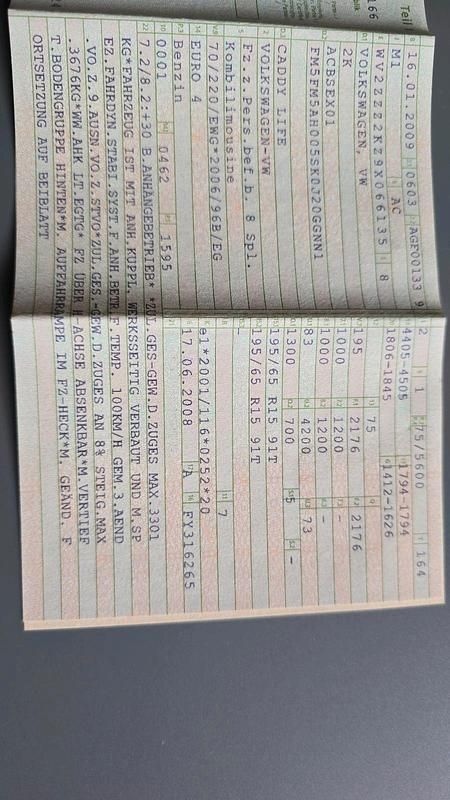 Teil
166
16.01.2009 0603 AGF00133 9
M1 AC
WV2ZZZ2KZ9X066135 8
VOLKSWAGEN, VW
2K
ACBSEX01
FM5FM5AH005SK0J20GGNN1
CADDY LIFE
VOLKSWAGEN-VW
Fz.z.Pers.bef.b. 8 Spl.
Kombilimousine
70/220/EWG*2006/96B/EG
EURO 4
Benzin
0001 0462 1595
2 1 75/5600 164
4405-4505 1794-1794
1806-1845 1412-1626
195 75
1000 2176 2176
1000 1200 –
83 1200 –
1300 4200 73
700 5 –
195/65 R15 91T
195/65 R15 91T
–
7
e1*2001/116*0252*20
17.06.2008 A FY316265
7.2/8.2:+30 B.ANHÄNGEBETRIEB* *ZUL.GES-GEW.D.ZUGES MAX.3301
KG*FAHRZEUG IST MIT ANH.KUPPL. WERKSSEITIG VERBAUT UND M.SP
EZ.FAHRDYN.STABI.SYST.F.ANH.BETR.F TEMP. 100KM/H GEM.3.AEND
.VO.Z.9.AUSN.VO.Z.STVO*ZUL.GES.-GEW.D.ZUGES AN 8% STEIG.MAX
.3676KG*WW.AHK LT.EGTG* FZ ÜBER H.ACHSE ABSENKBAR*M.VERTIEF
T.BODENGRUPPE HINTEN*M. AUFFAHRRAMPE IM FZ-HECK*M. GEÄND. F
ORTSETZUNG AUF BEIBLATT